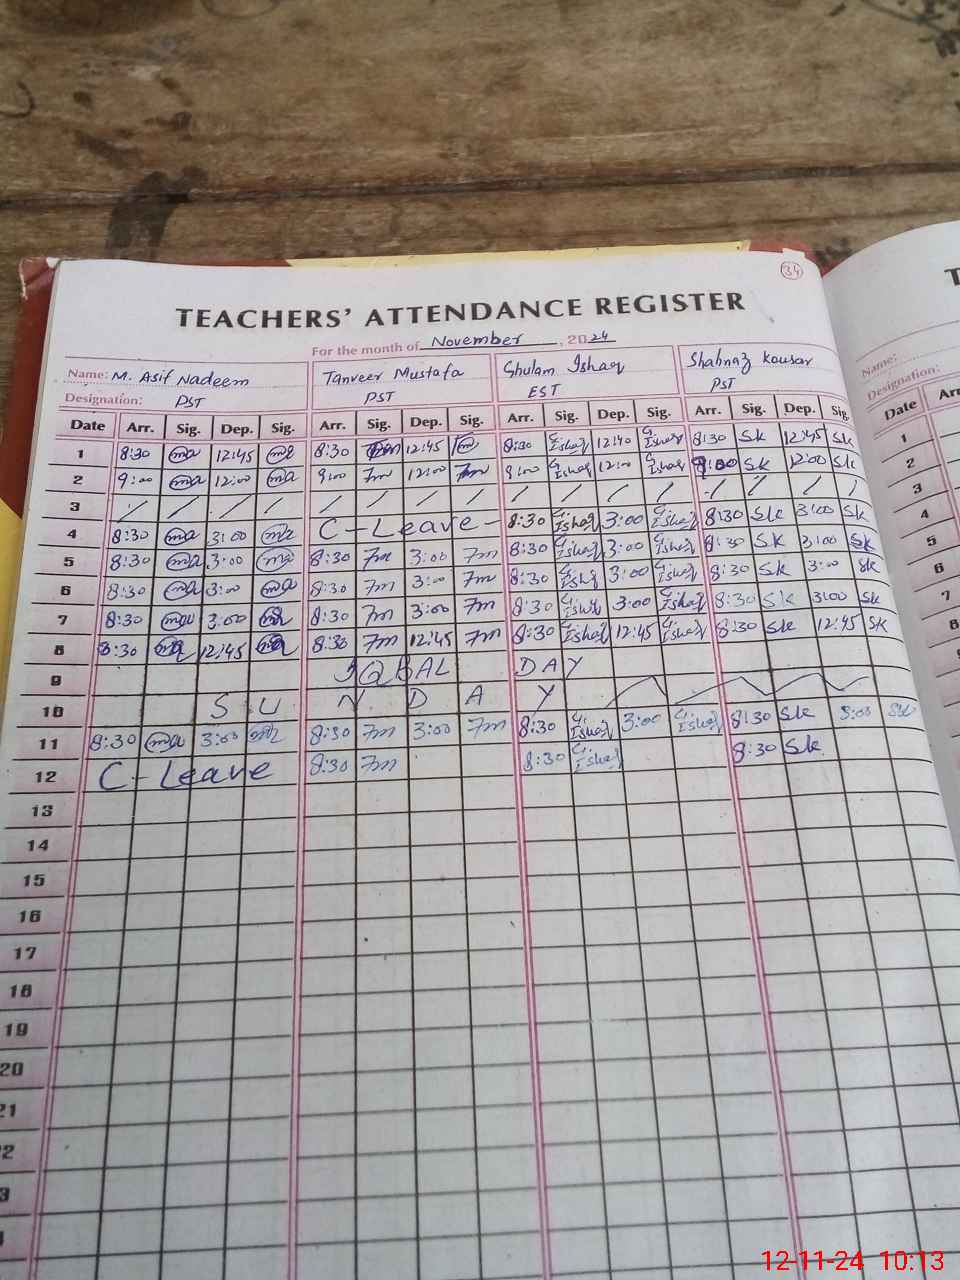 34
TEACHERS' ATTENDANCE REGISTER
For the month of November, 2024
Name: M. Asif Nadeem Tanveer Mustafa Ghulam Ishaq Shahnaz Kousar
Designation: PST PST EST PST
Date Arr. Sig. Dep. Sig. Arr. Sig. Dep. Sig. Arr. Sig. Dep. Sig. Arr. Sig. Dep. Sig.
1 8:30 ma 12:45 ma 8:30 Tm 12:45 Tm 8:30 G. Ishaq 12:40 G. Ishaq 8:30 Sk 12:45 Sk
2 9:00 ma 12:00 ma 9:00 Tm 12:00 Tm 9:00 G. Ishaq 12:00 G. Ishaq 9:00 Sk 12:00 Sk
3 / / / / / / / / / / / / / / / /
4 8:30 ma 3:00 ma C-Leave- 8:30 G. Ishaq 3:00 G. Ishaq 8:30 Sk 3:00 Sk
5 8:30 ma 3:00 ma 8:30 Tm 3:00 Tm 8:30 G. Ishaq 3:00 G. Ishaq 8:30 Sk 3:00 Sk
6 8:30 ma 3:00 ma 8:30 Tm 3:00 Tm 8:30 G. Ishaq 3:00 G. Ishaq 8:30 Sk 3:00 Sk
7 8:30 ma 3:00 ma 8:30 Tm 3:00 Tm 8:30 G. Ishaq 3:00 G. Ishaq 8:30 Sk 3:00 Sk
8 8:30 ma 12:45 ma 8:30 Tm 12:45 Tm 8:30 G. Ishaq 12:45 G. Ishaq 8:30 Sk 12:45 Sk
9 IQBAL DAY
10 S U N D A Y
11 8:30 ma 3:00 ma 8:30 Tm 3:00 Tm 8:30 G. Ishaq 3:00 G. Ishaq 8:30 Sk 3:00 Sk
12 C-Leave 8:30 Tm 8:30 G. Ishaq 8:30 Sk
13
14
15
16
17
18
19
20
21
Name:
Designation:
Date
1
2
3
4
5
6
7
8
12-11-24 10:13